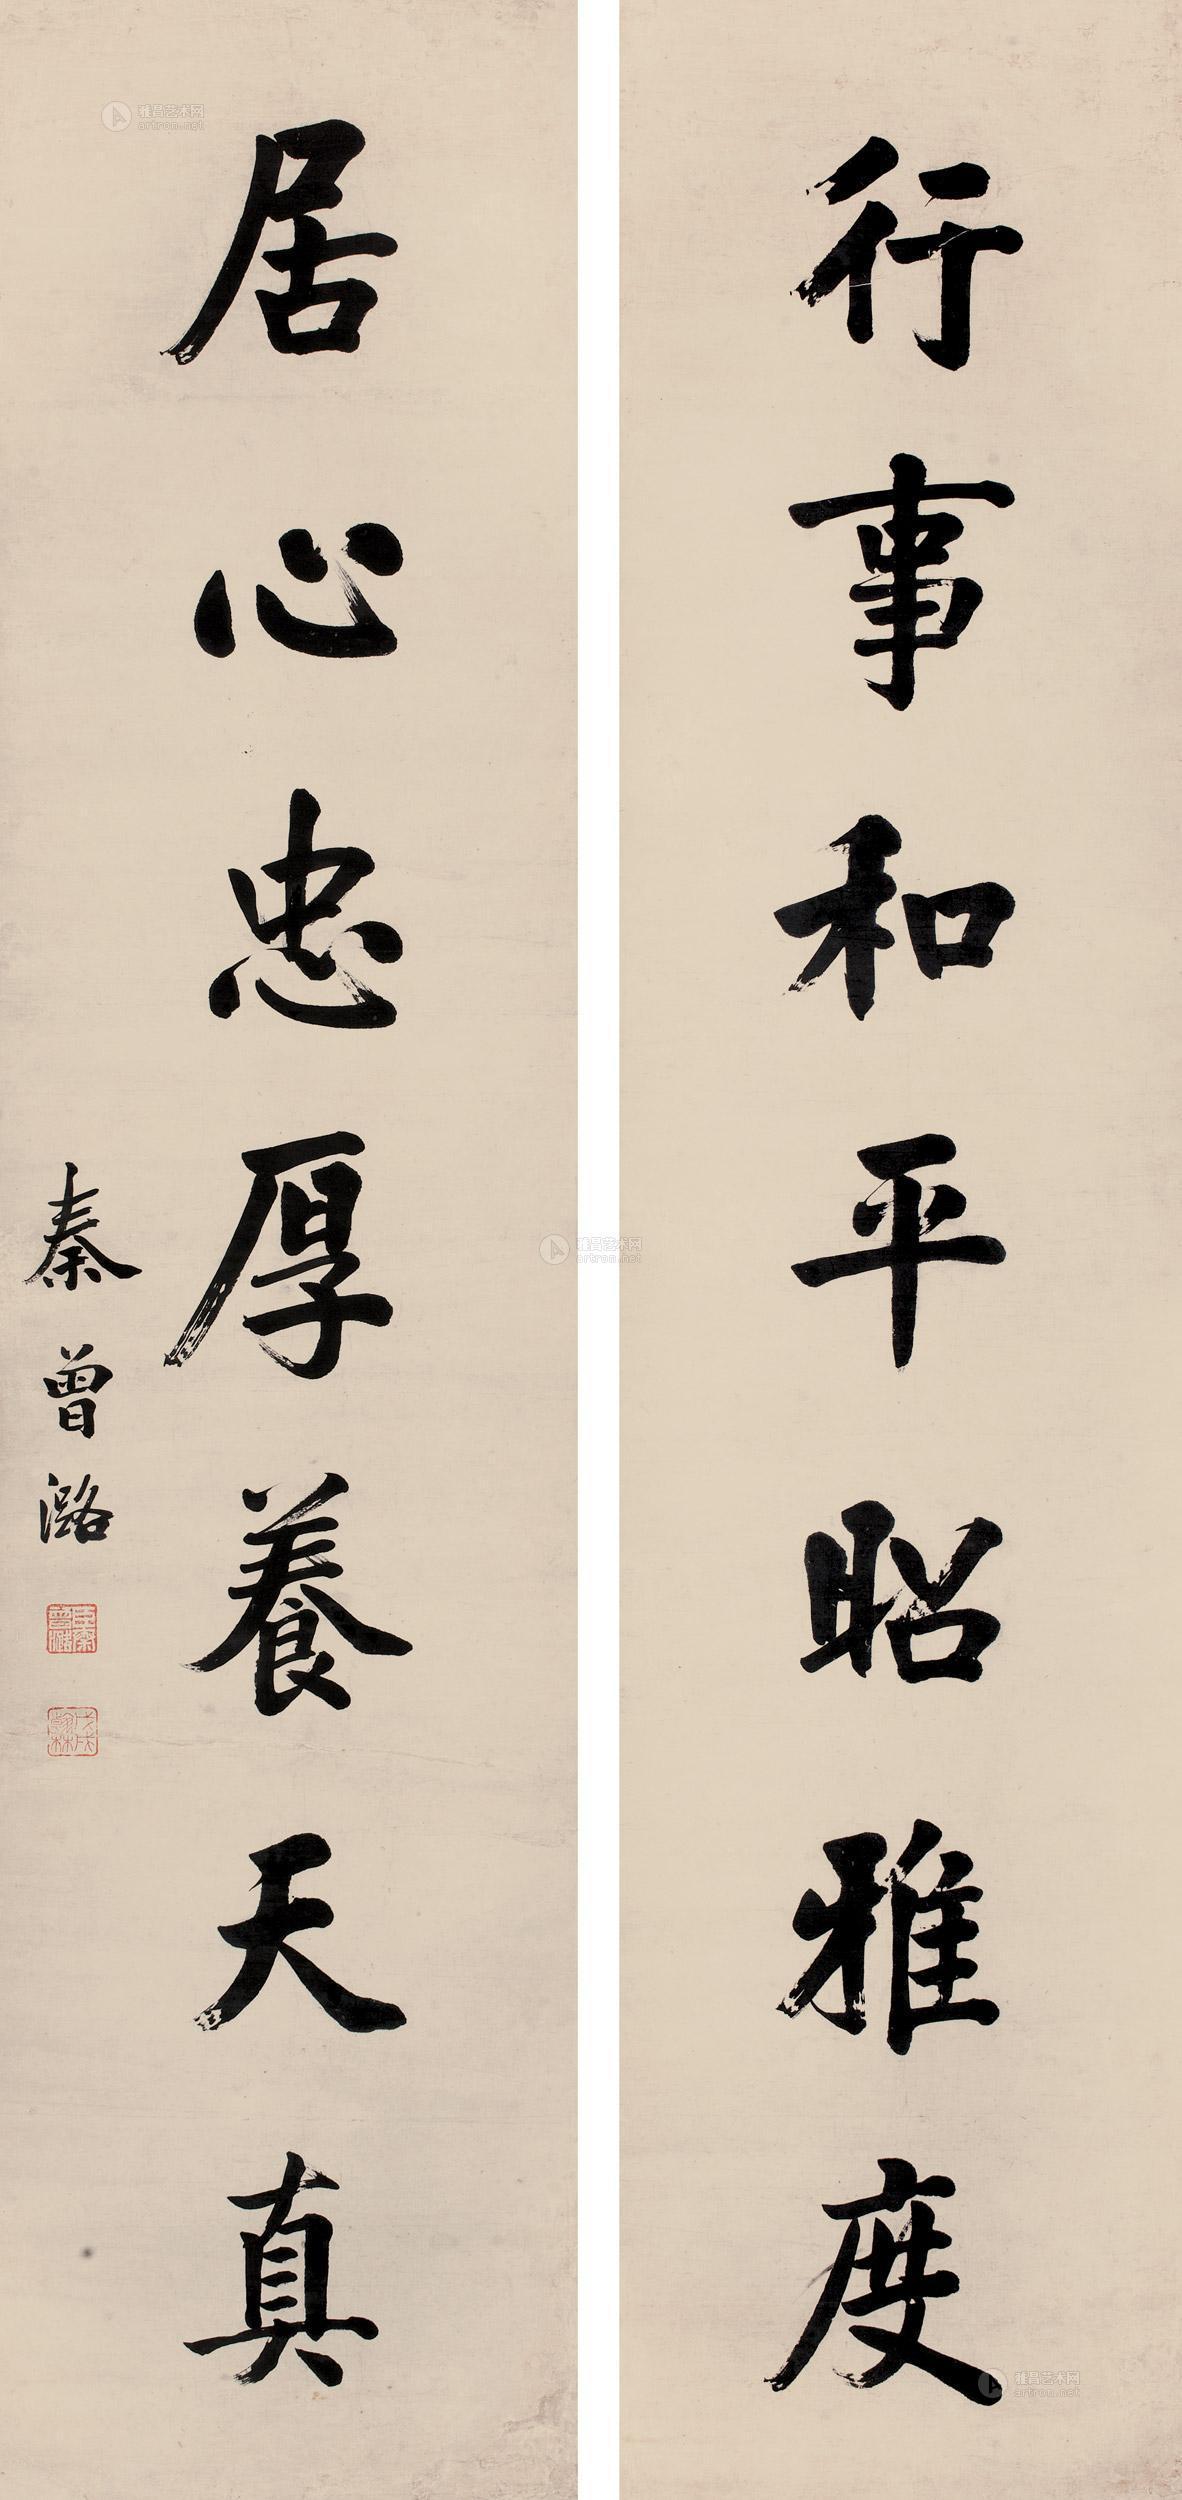 行事和平昭雅度
居心忠厚養天真
秦曾潞
戊戌翰林
雅昌艺术网
artron.net
雅昌艺术网
artron.net
雅昌艺术网
artron.net